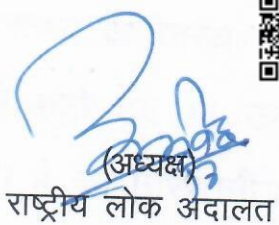 (अध्यक्ष)
राष्ट्रीय लोक अदालत